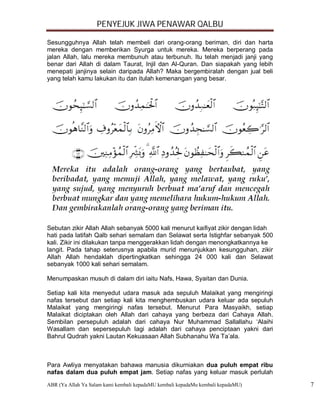 PENYEJUK JIWA PENAWAR QALBU
Sesungguhnya Allah telah membeli dari orang-orang beriman, diri dan harta
mereka dengan memberikan Syurga untuk mereka. Mereka berperang pada
jalan Allah, lalu mereka membunuh atau terbunuh. Itu telah menjadi janji yang
benar dari Allah di dalam Taurat, Injil dan Al-Quran. Dan siapakah yang lebih
menepati janjinya selain daripada Allah? Maka bergembiralah dengan jual beli
yang telah kamu lakukan itu dan itulah kemenangan yang besar.
ٱلتَّٰٓئِبُونَ ٱلْعَٰبِدُونَ ٱلْحَٰمِدُونَ ٱلسَّٰٓئِحُونَ
ٱلرَّٰكِعُونَ ٱلسَّٰجِدُونَ ٱلْءَامِرُونَ بِٱلْمَعْرُوفِ وَٱلنَّاهُونَ
عَنِ ٱلْمُنكَرِ وَٱلْحَٰفِظُونَ لِحُدُودِ ٱللَّهِ ۗ وَبَشِّرِ ٱلْمُؤْمِنِينَ ﴿١١٢﴾
Mereka itu adalah orang-orang yang bertaubat, yang
beribadat, yang memuji Allah, yang melawat, yang ruku',
yang sujud, yang menyuruh berbuat ma'aruf dan mencegah
berbuat mungkar dan yang memelihara hukum-hukum Allah.
Dan gembirakanlah orang-orang yang beriman itu.
Sebutan zikir Allah Allah sebanyak 5000 kali menurut kaifiyat zikir dengan lidah
hati pada latifah Qalb sehari semalam dan Selawat serta Istighfar sebanyak 500
kali. Zikir ini dilakukan tanpa menggerakkan lidah dengan menongkatkannya ke
langit. Pada tahap seterusnya apabila murid menunjukkan kesungguhan, zikir
Allah Allah hendaklah dipertingkatkan sehingga 24 000 kali dan Selawat
sebanyak 1000 kali sehari semalam.
Menumpaskan musuh di dalam diri iaitu Nafs, Hawa, Syaitan dan Dunia.
Setiap kali kita menyedut udara masuk ada sepuluh Malaikat yang mengiringi
nafas tersebut dan setiap kali kita menghembuskan udara keluar ada sepuluh
Malaikat yang mengiringi nafas tersebut. Menurut Para Masyaikh, setiap
Malaikat diciptakan oleh Allah dari cahaya yang berbeza dari Cahaya Allah.
Sembilan persepuluh adalah dari cahaya Nur Muhammad Sallallahu 'Alaihi
Wasallam dan sepersepuluh lagi adalah dari cahaya penciptaan yakni dari
Bahrul Qudrah yakni Lautan Kekuasaan Allah Subhanahu Wa Ta'ala.
Para Awliya menyatakan bahawa manusia dikurniakan dua puluh empat ribu
nafas dalam dua puluh empat jam. Setiap nafas yang keluar masuk perlulah
ABR (Ya Allah Ya Salam kami kembali kepadaMU kembali kepadaMu kembali kepadaMU) 7